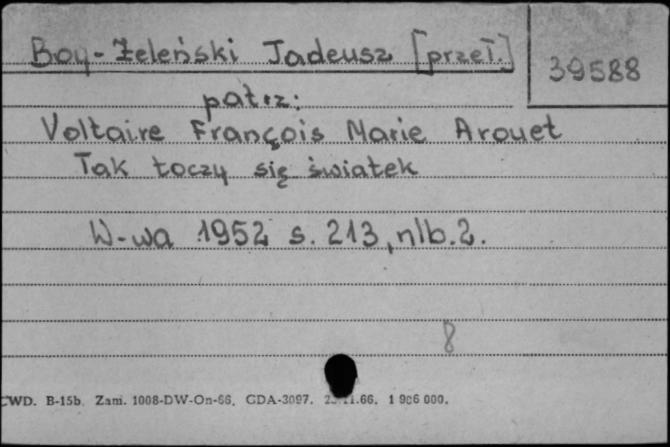 Boy-Żeleński Tadeusz [przeł.]
39588
patrz:
Voltaire François Marie Arouet
Tak toczy się światek
W-wa 1952 s. 213, nlb. 2.
8
CWD. B-15b. Zam. 1008-DW-On-66. GDA-3097. 11.66. 1 986 000.